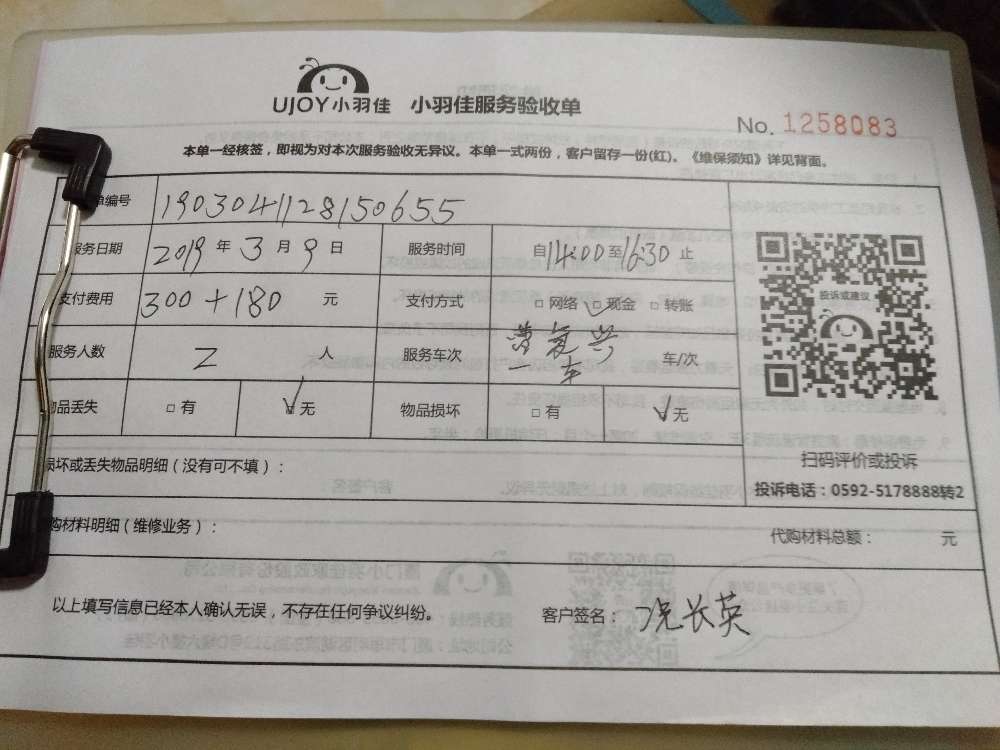 UJOY小羽佳 小羽佳服务验收单
No. 1258083
本单一经核签，即视为对本次服务验收无异议。本单一式两份，客户留存一份(红)。《维保须知》详见背面。
单编号 190304112815 0655
服务日期 2019 年 3 月 9 日 服务时间 自14:00至16:30止
支付费用 300+180 元 支付方式 □网络 □现金 □转账
投诉或建议
服务人数 2 人 服务车次 复兴 一车 车/次
物品丢失 □有 □无 物品损坏 □有 □无
扫码评价或投诉
损坏或丢失物品明细（没有可不填）：
投诉电话：0592-5178888转2
购材料明细（维修业务）： 代购材料总额： 元
以上填写信息已经本人确认无误，不存在任何争议纠纷。 客户签名： 长英